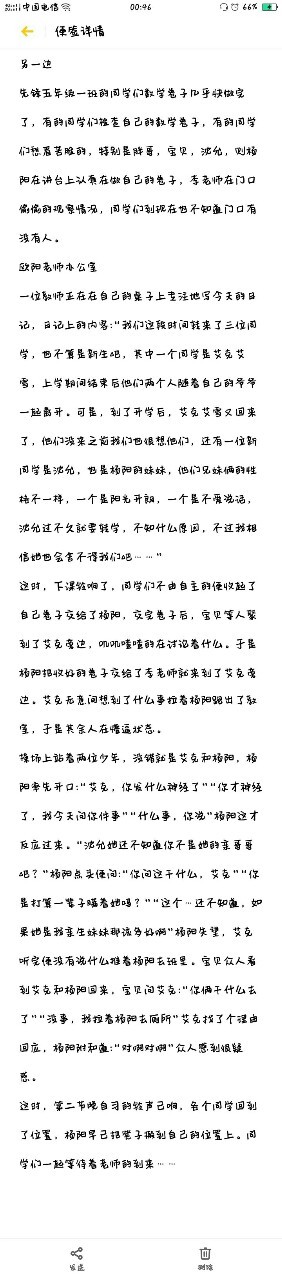 中国电信
00:46
66%
便签详情
另一边
先锋五年级一班的同学们数学卷子几乎快做完
了，有的同学们检查自己的数学卷子，有的同学
们愁眉苦脸的，特别是胖哥，宝贝，沈允，则杨
阳在讲台上认真在做自己的卷子，李老师在门口
偷偷的观察情况，同学们到现在也不知道门口有
没有人。
欧阳老师办公室
一位教师正在在自己的桌子上专注地写今天的日
记，日记上的内容:“我们这段时间转来了三位同
学，也不算是新生吧，其中一个同学是艾克艾
雪，上学期间结束后他们两个人随着自己的爷爷
一起离开。可是，到了开学后，艾克艾雪又回来
了，他们没来之前我们也很想他们，还有一位新
同学是沈允，也是杨阳的妹妹，他们兄妹俩的性
格不一样，一个是阳光开朗，一个是不爱说话，
沈允过不久就要转学，不知什么原因，不过我相
信她也会舍不得我们吧……”
这时，下课铃响了，同学们不由自主的便收起了
自己卷子交给了杨阳，交完卷子后，宝贝等人聚
到了艾克旁边，叽叽喳喳的在讨论着什么。于是
杨阳把收好的卷子交给了李老师就来到了艾克旁
边。艾克无意间想到了什么事拉着杨阳跑出了教
室，于是其余人在懵逼状态。
操场上站着两位少年，没错就是艾克和杨阳，杨
阳率先开口:“艾克，你发什么神经了”“你才神经
了，我今天问你件事”“什么事，你说”杨阳这才
反应过来。“沈允她还不知道你不是她的亲哥哥
吧？”杨阳点头便问:“你问这干什么，艾克”“你
是打算一辈子瞒着她吗？”“这个…还不知道，如
果她是我亲生妹妹那该多好啊”杨阳失望，艾克
听完便没有说什么推着杨阳去班里。宝贝众人看
到艾克和杨阳回来，宝贝问艾克:“你俩干什么去
了”“没事，我拉着杨阳去厕所”艾克找了个理由
回应，杨阳附和道:“对啊对啊”众人感到很疑
惑。
这时，第二节晚自习的铃声已响，各个同学回到
了位置，杨阳早已把桌子搬到自己的位置上。同
学们一起等待着老师的到来……
发送
删除